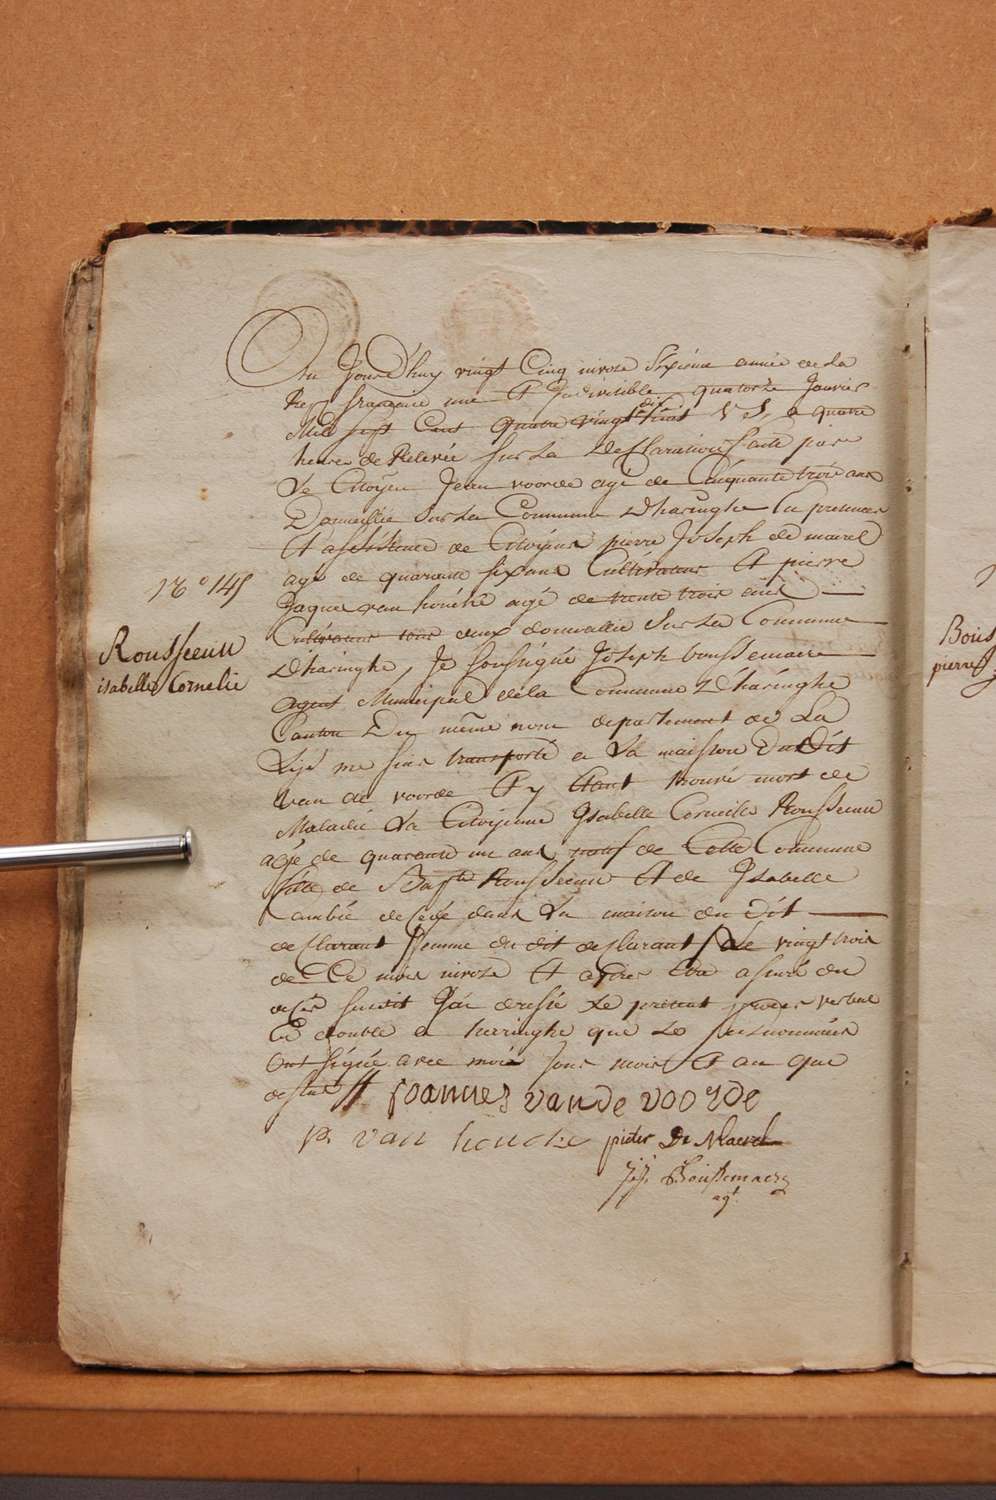 Au Jourd'huy vingt Cinq nivose Sixieme année de La
Rep française une et Indivisible quatorze Janvier
Mil sept Cent Quatre vingt dix huit V S, a quatre
heures de Relevée sur La Declaration faite par
Le Citoyen Jean voorde agé de Cinquante trois ans
Domeillie sur La Commune Dharinghe En presence
Et assistence de Citoyens pierre Joseph de marel
agé de quarante six ans Cultivateur Et pierre
Jaque van houcke agé de trente trois ans
Cultivateur tous deux domeillie sur La Commune
Dharinghe, Je soussigné Joseph boussemaire
agent Municipal de la Commune Dharinghe
Canton Du même nom departement de La
Lys me suis transporté a La maison Du Dit
van de voorde Et y Etant trouvé mort de
Maladie La Citoyenne Ysabelle Corneille Rousseeuw
N° 145
Rousseeuw
isabelle Cornelie
agé de quarante un ans natif de Cette Commune
fille de Bapte Rousseeuw Et de Isabelle
decedé dans La maison du Dit
declarant femme du dit declarant Le vingt trois
de Ce mois nivose Et apres assuré du
deces susdit J'ai dressé Le present proces verbal
En double a herringhe que Le
Ont signé avec moi Jour mois Et an que
dessus
Joannes vande voorde
p. van houcke pieter De Marel
J. J. Boussemaere
agt
Bois
pierre J